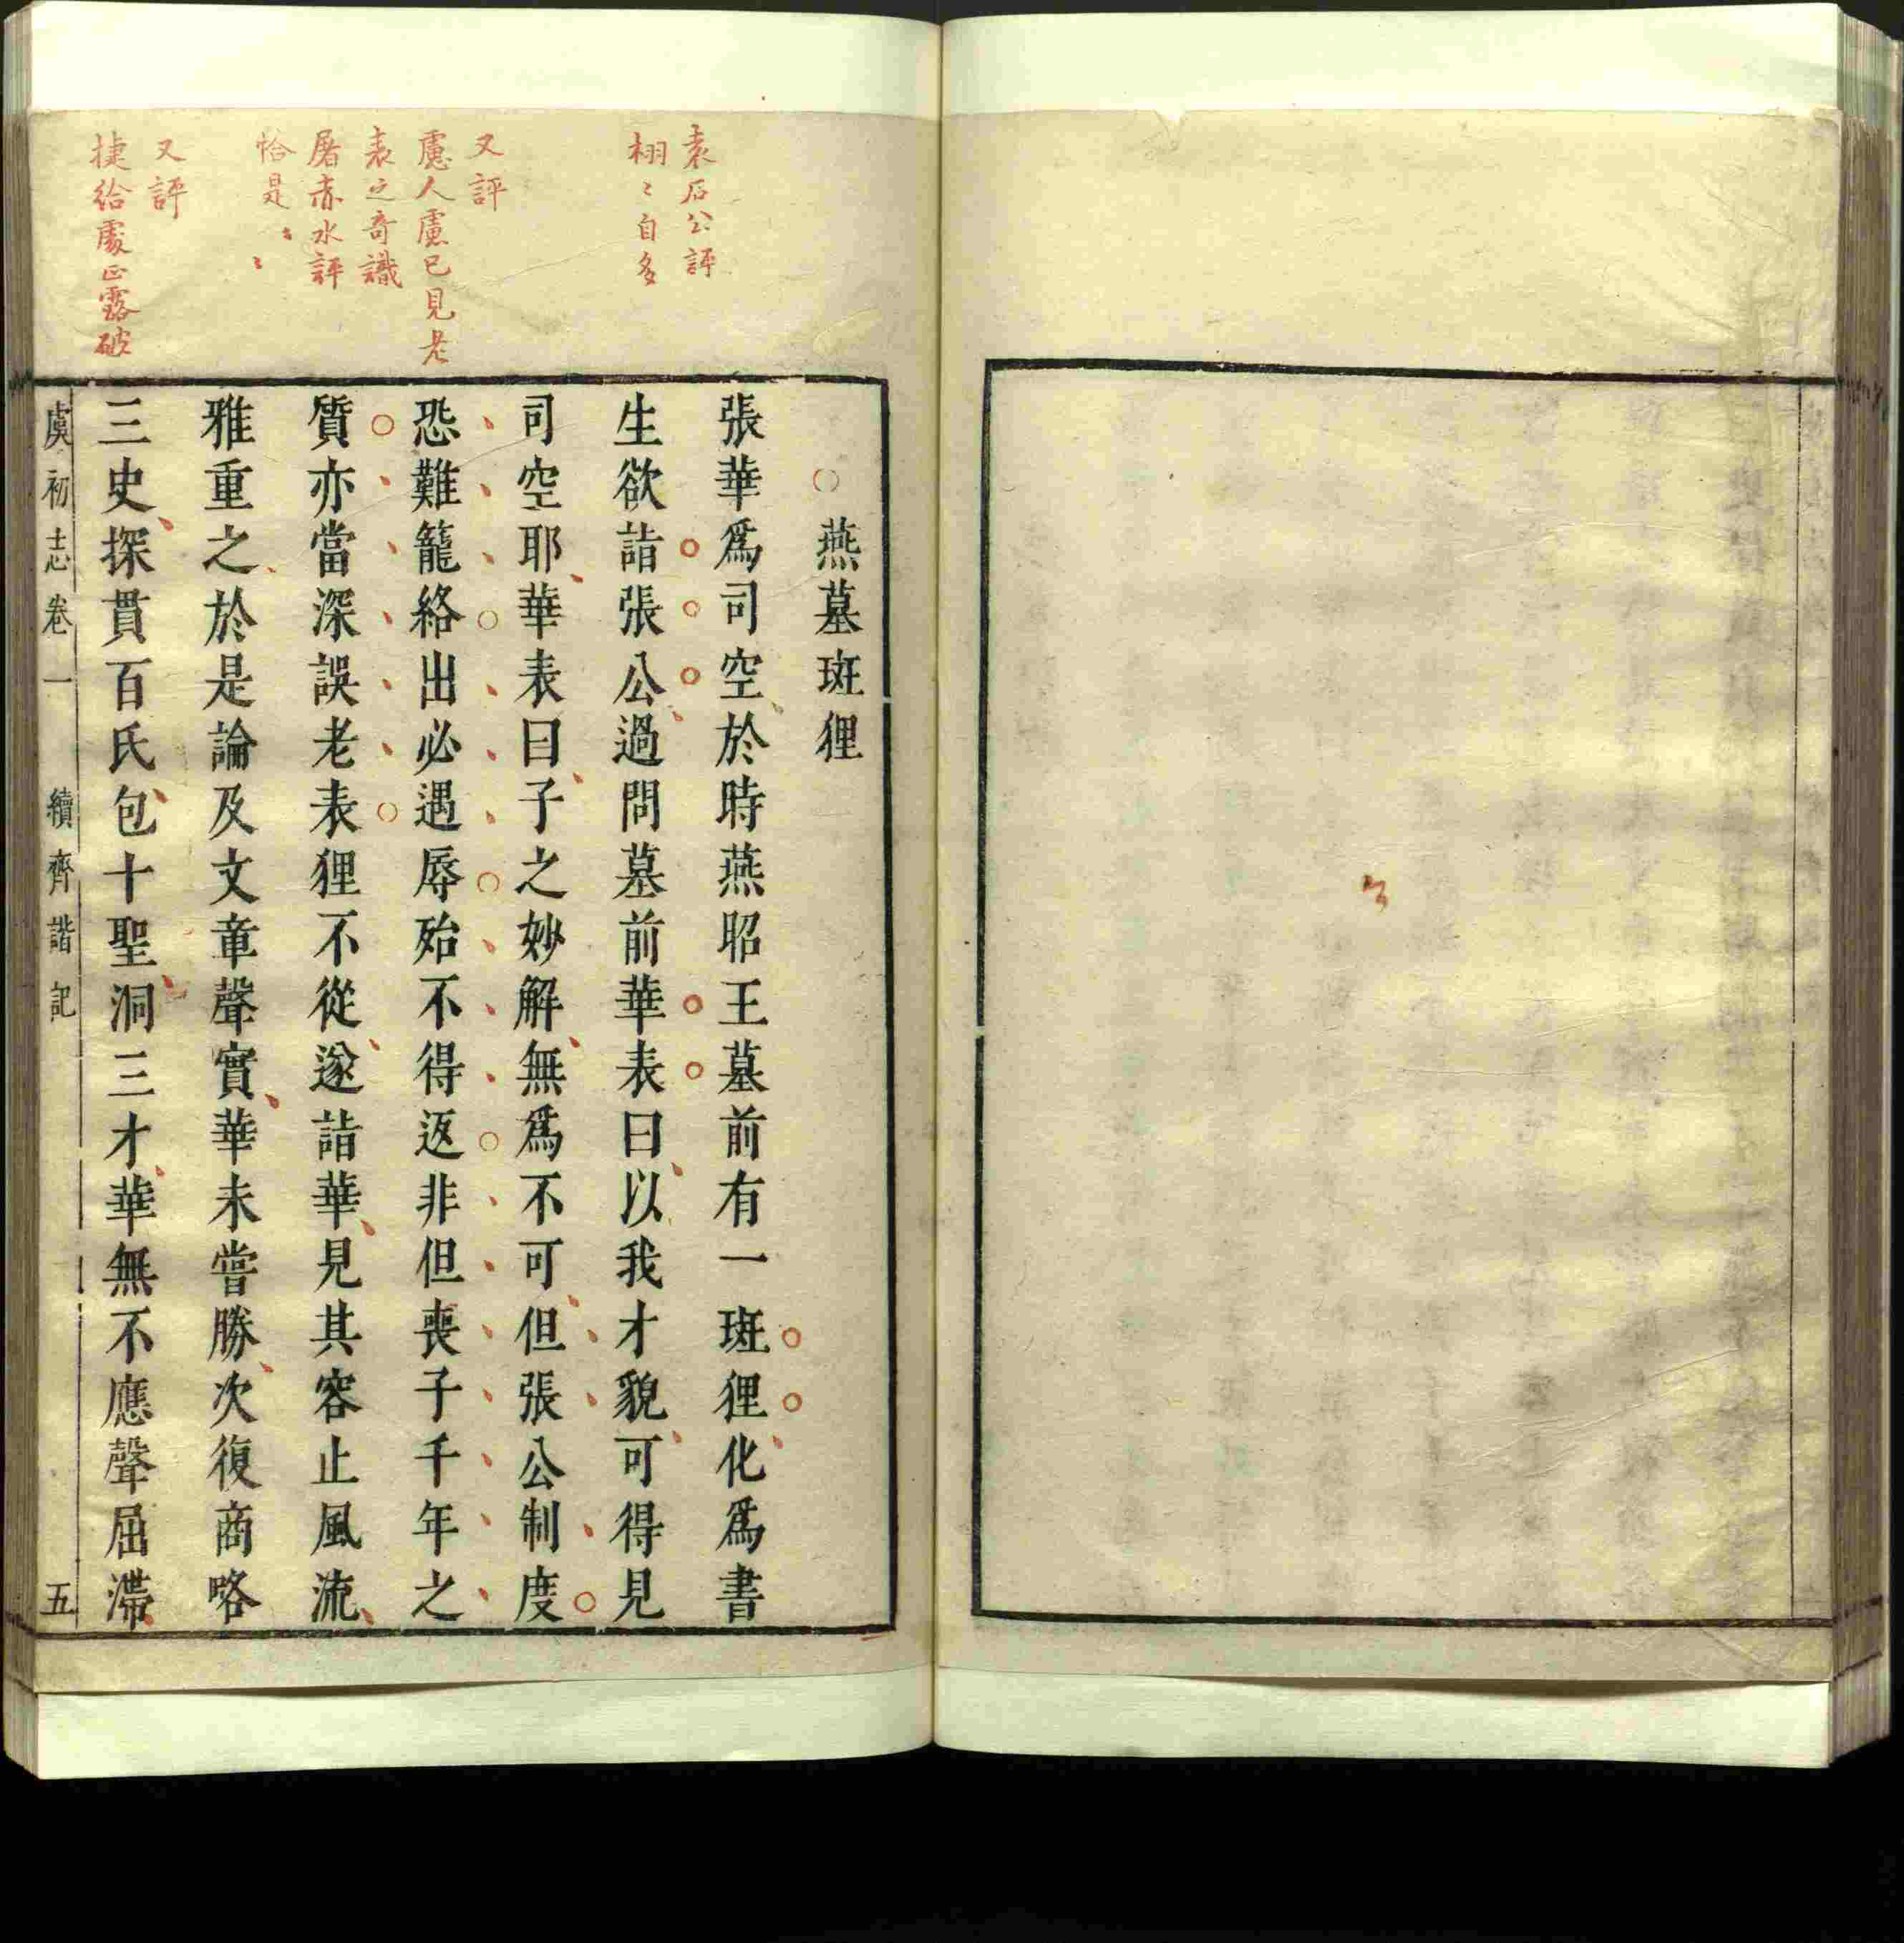 袁石公評
栩〻自多
又評
慮人慮已見老
表之奇識
屠赤水評
恰是〻〻
又評
捷給處正露破
燕墓斑狸
張華爲司空於時燕昭王墓前有一斑狸化爲書
生欲詣張公過問墓前華表曰以我才貌可得見
司空耶華表曰子之妙解無爲不可但張公制度
恐難籠絡出必遇辱殆不得返非但喪子千年之
質亦當深誤老表狸不從遂詣華見其容止風流
雅重之於是論及文章聲實華未嘗勝次復商略
三史探貫百氏包十聖洞三才華無不應聲屈滯
虞初志卷一 續齊諧記 五